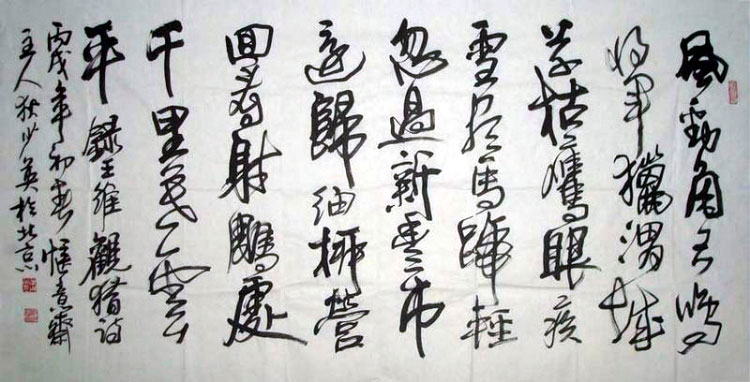 風勁角弓鳴
將軍獵渭城
草枯鷹眼疾
雪尽馬蹄輕
忽過新豐市
還歸細柳營
回看射鵰處
千里暮雲
平 錄王維觀猎詩
丙戌年初春悟意齋
主人狄少英於北京